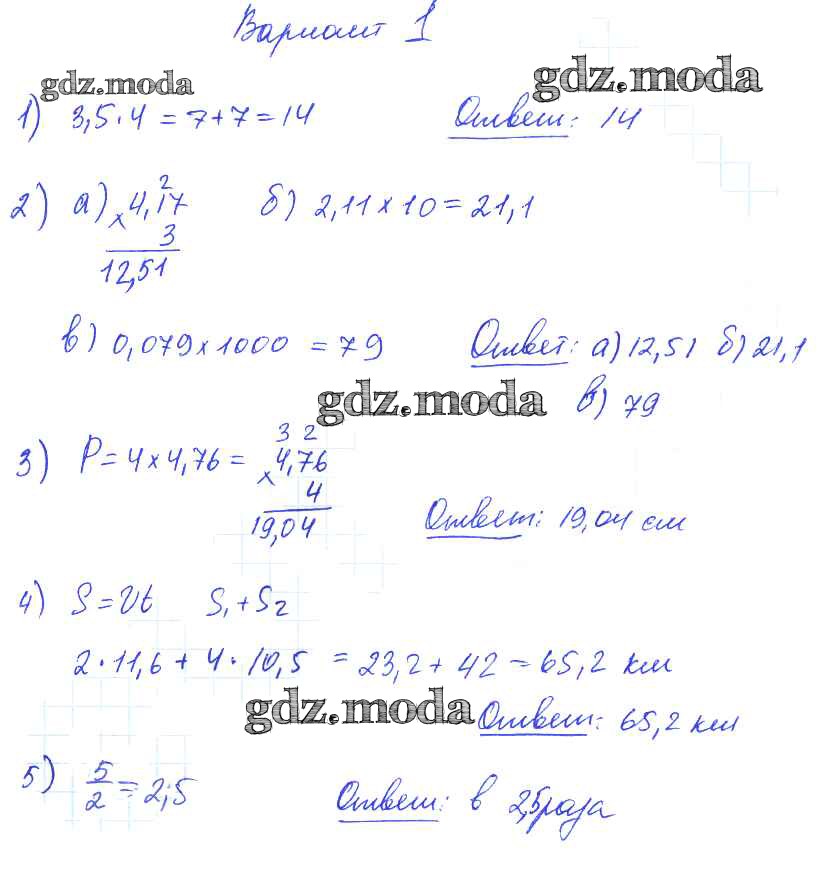 Вариант 1
gdz.moda gdz.moda
1) 3,5·4 = 7+7 = 14 Ответ: 14
2
2) а) × 4,17 б) 2,11 × 10 = 21,1
3
12,51
в) 0,079 × 1000 = 79 Ответ: а) 12,51 б) 21,1
gdz.moda в) 79
3 2
3) P = 4 × 4,76 = × 4,76
4
19,04 Ответ: 19,04 см
4) S = Vt S₁ + S₂
2·11,6 + 4·10,5 = 23,2 + 42 = 65,2 км
gdz.moda Ответ: 65,2 км
5) 5/2 = 2,5 Ответ: в 2,5 раза